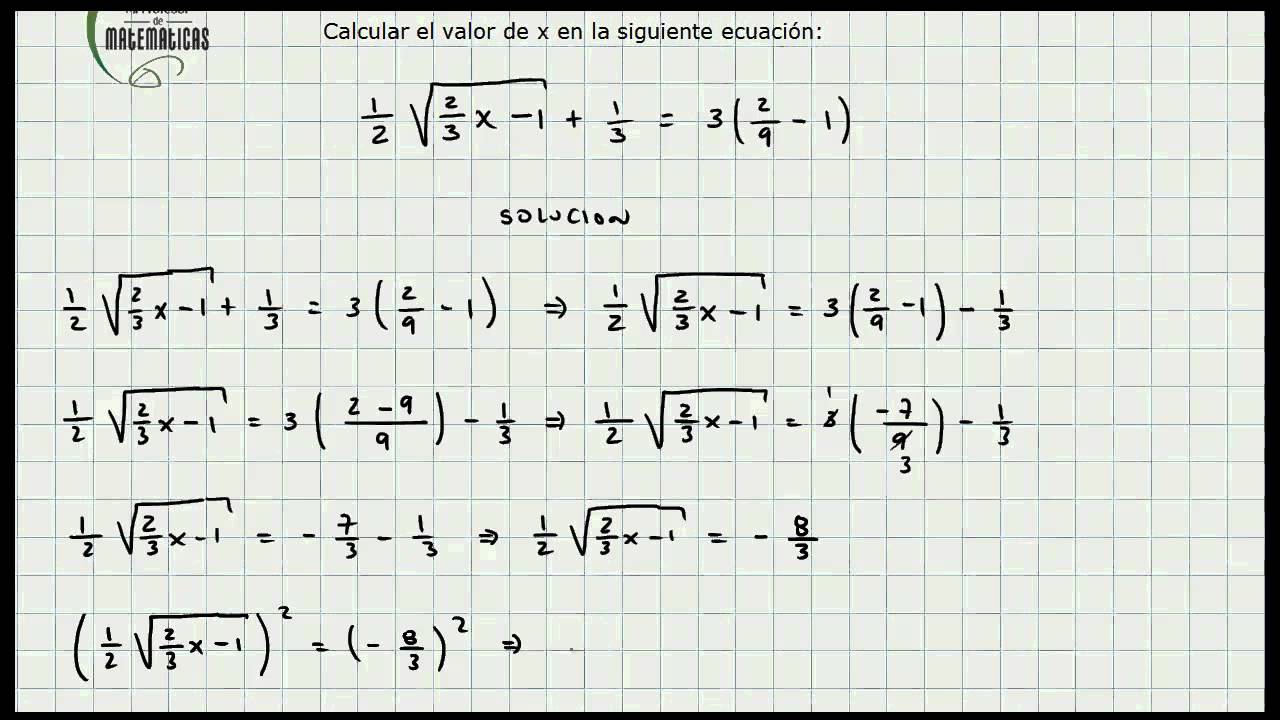 de
MATEMATICAS
Calcular el valor de x en la siguiente ecuación:
1/2 √(2/3 x - 1) + 1/3 = 3(2/9 - 1)
SOLUCION
1/2 √(2/3 x - 1) + 1/3 = 3(2/9 - 1) ⇒ 1/2 √(2/3 x - 1) = 3(2/9 - 1) - 1/3
1/2 √(2/3 x - 1) = 3((2 - 9)/9) - 1/3 ⇒ 1/2 √(2/3 x - 1) = 3̸ 1 (-7/9̸ 3) - 1/3
1/2 √(2/3 x - 1) = - 7/3 - 1/3 ⇒ 1/2 √(2/3 x - 1) = - 8/3
(1/2 √(2/3 x - 1))² = (- 8/3)² ⇒